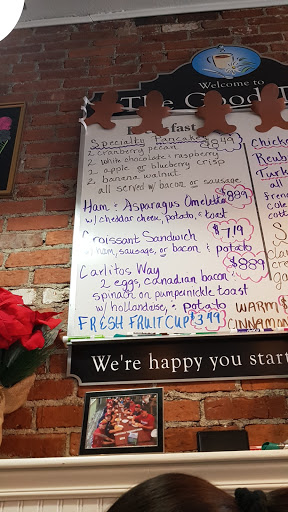 Welcome to
The Good
Specialty Pancakes $8.49
2 cranberry pecan
2 white chocolate & raspberry
2 apple or blueberry crisp
2 banana walnut
all served w/ bacon or sausage
Ham & Asparagus Omelette $8.99
w/ cheddar cheese, potato, & toast
Croissant Sandwich $7.19
w/ ham, sausage, or bacon & potato
Carlitos Way $8.89
2 eggs, canadian bacon &
spinach on pumpernickle toast
w/ hollandaise, & potato
FRESH FRUIT CUP $3.99
WARM
CINNAMON
We're happy you start